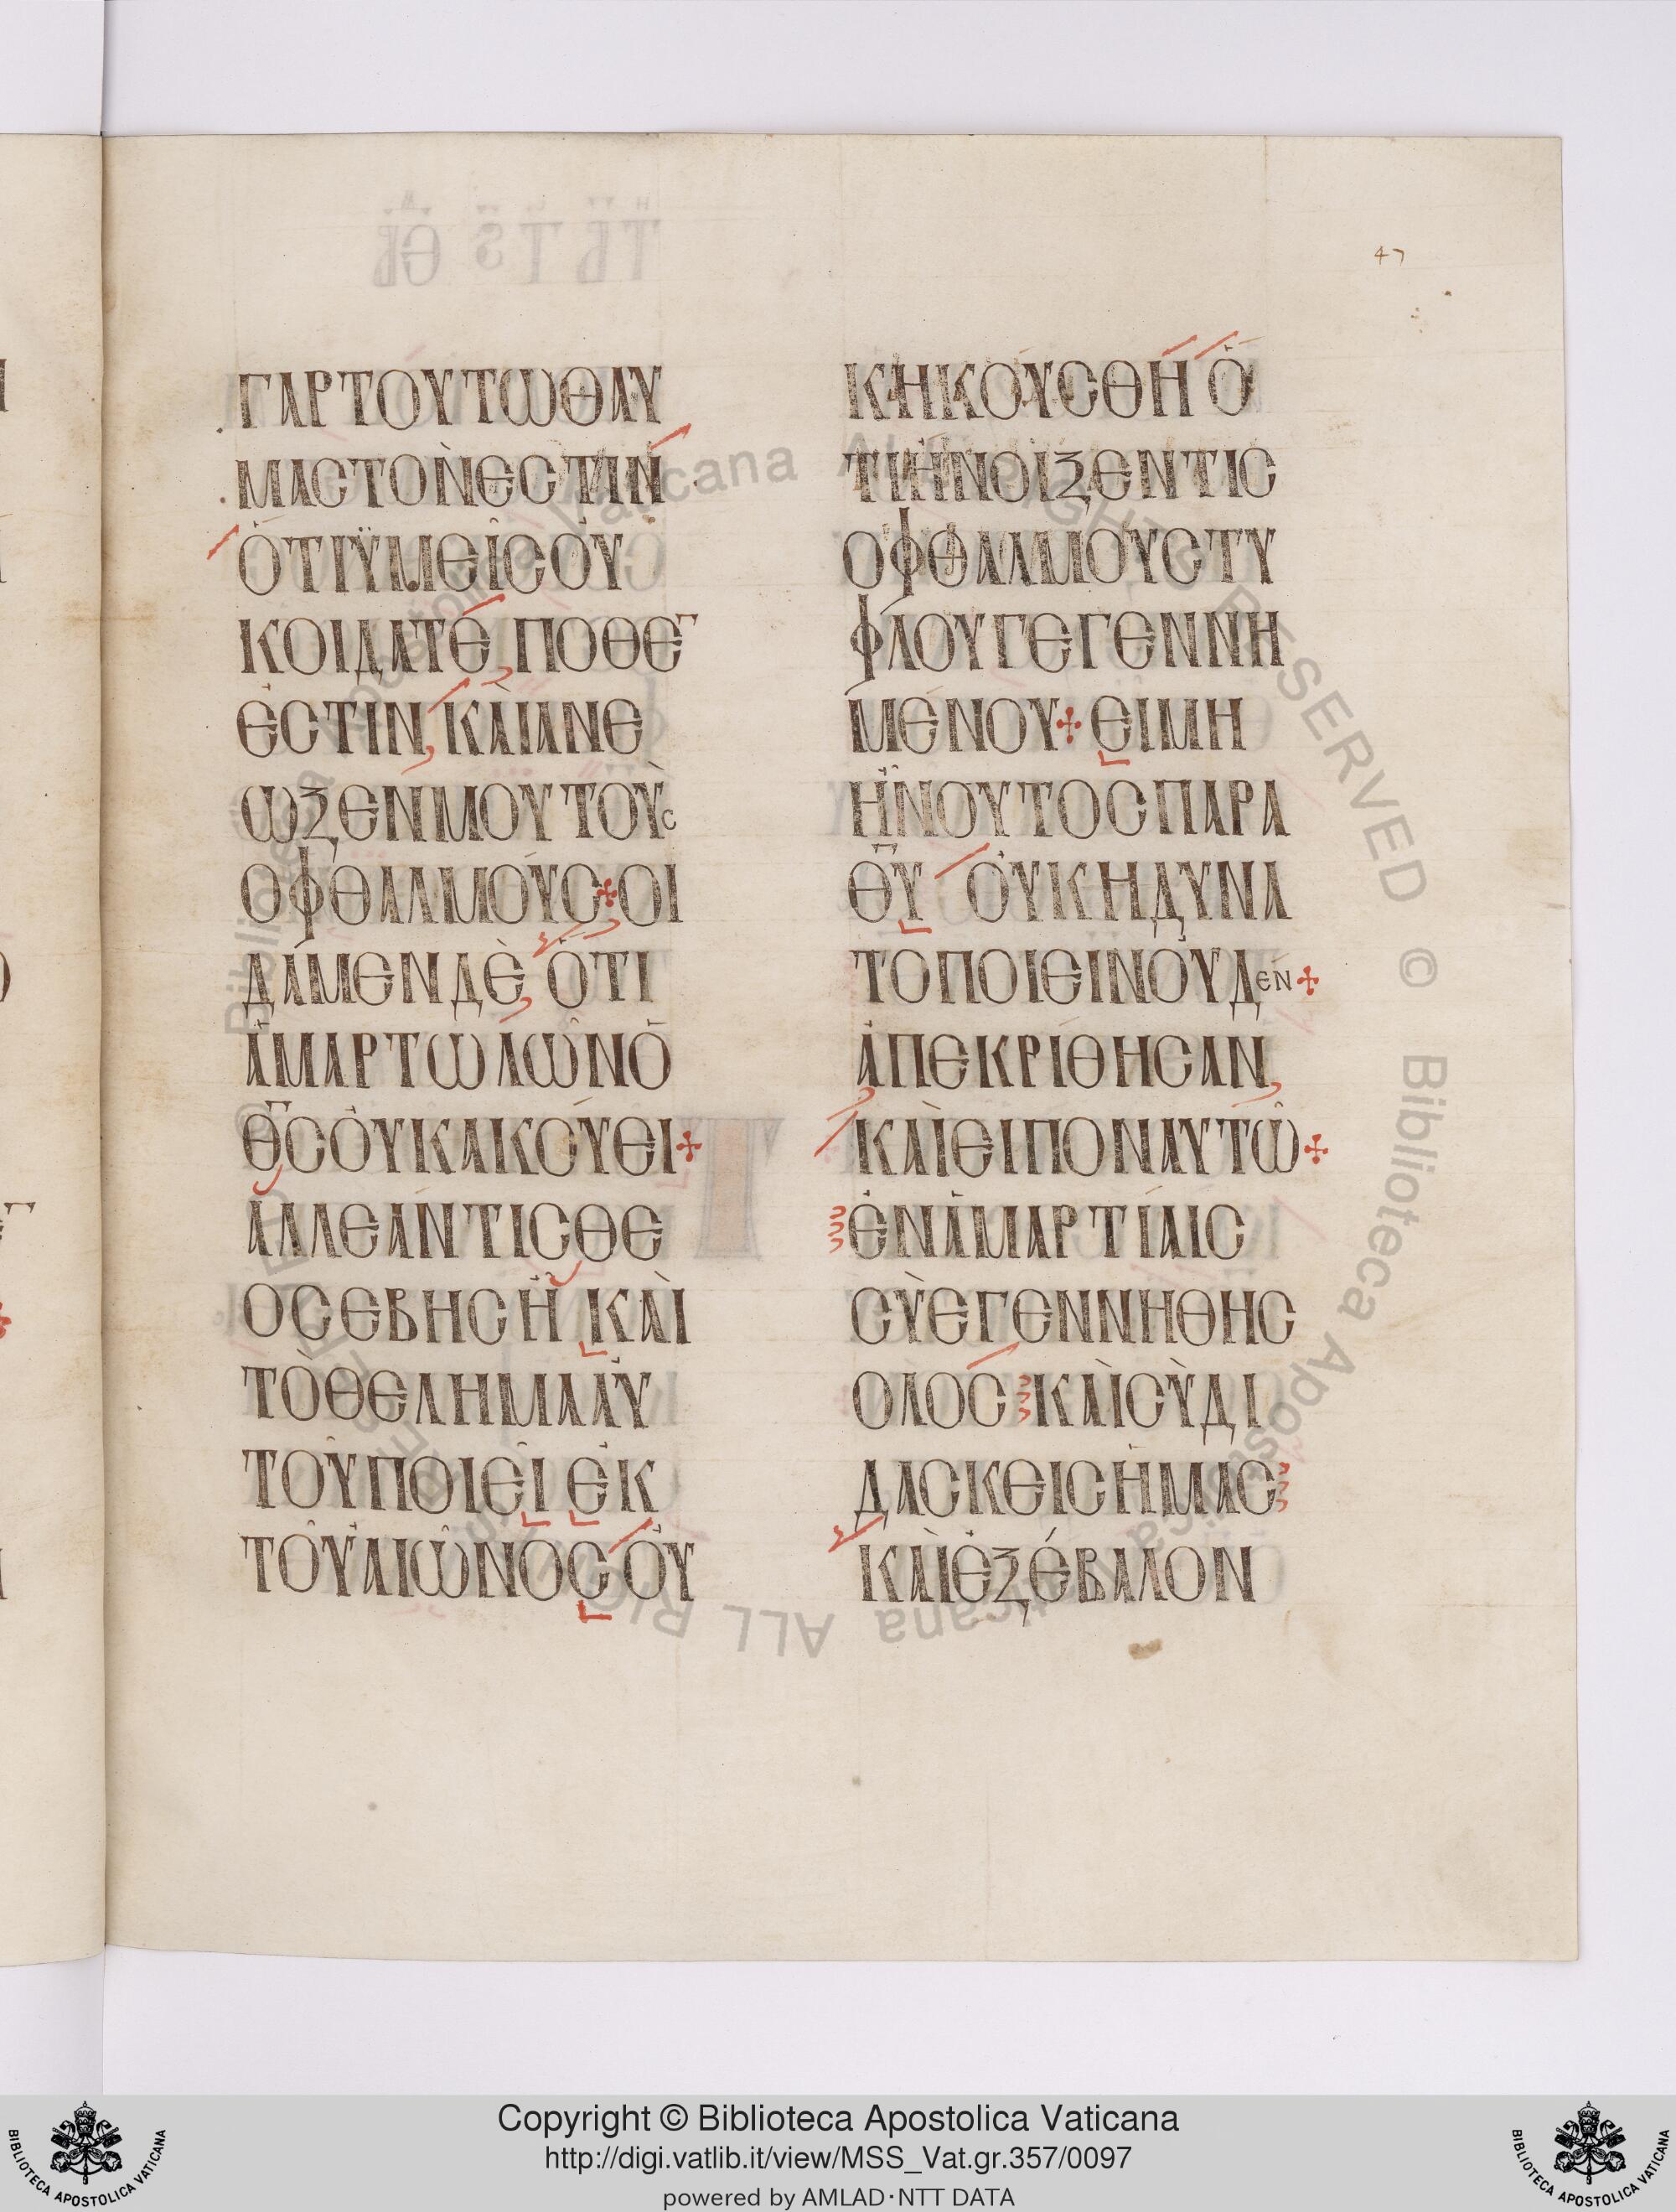 47
ΓΑΡΤΟΥΤΩΘΑΥ
ΜΑCΤῸΝΕCΤΙΝ
ὉΤΙΫΜΕῖCΟΥ̓
ΚΟΙΔΑΤΕ, ΠΟΘΕ¯
ἘCΤΙΝ, ΚΑῚΑΝΕ
ΩΞΕΝΜΟΥΤΟῪC
ΟΦΘΑΛΜΟΎC ΟΙ
ΔΆΜΕΝΔῈ, ὉΤΙ
ἉΜΑΡΤΩΛΩ͂ΝὉ
Θ̅C̅ΟΥ̓ΚΑΚΟΎΕΙ
ἈΛΛΕΆΝΤΙCΘΕ
ΟCΕΒῊCΗ͂ ΚΑῚ
ΤῸΘΕΛΗΜΑΑΥ̓
ΤΟΥ͂ΠΟΙΕῖ ἘΚ
ΤΟΥ͂ΑἸΩ͂ΝΟC ΟΥ̓
ΚΗΚΟΎCΘΗ Ὅ
ΤΙἨΝΟΙΞΕΝΤΙC
ΟΦΘΑΛΜΟῪCΤΥ
ΦΛΟΥΓΕΓΕΝΝΗ
ΜΈΝΟΥ ΕΙΜΗ
Η͂ΝΟΥΤΟCΠΑΡΑ
Θ̅Υ̅ ΟΥ̓ΚΗΔΥΝΑ
ΤΟΠΟΙΕΙΝΟΥ̓ΔΕΝ
ἈΠΕΚΡΊΘΗCΑΝ,
ΚΑῚΕΙΠΟΝΑΥΤΩ͂
ἘΝἉΜΑΡΤΊΑΙC
CῪΕΓΕΝΝΗΘΗC
ΟΛΟC ΚΑῚCῪΔΙ
ΔΑCΚΕΙCἩΜΑC
ΚΑῚἘΞΈΒΑΛΟΝ
Copyright © Biblioteca Apostolica Vaticana
http://digi.vatlib.it/view/MSS_Vat.gr.357/0097
powered by AMLAD·NTT DATA
BIBLIOTECA APOSTOLICA VATICANA
BIBLIOTECA APOSTOLICA VATICANA